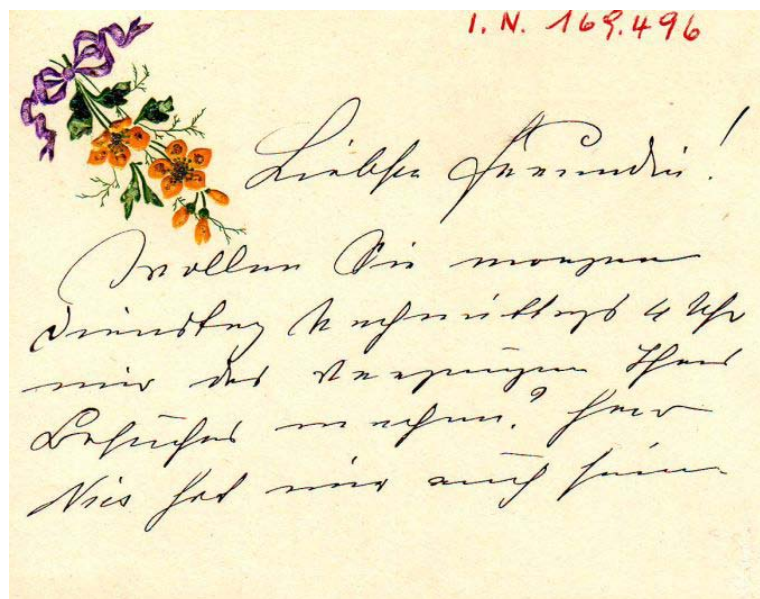 I. N. 169.496
Liebste Freundin!
Wollen Sie morgen
Dienstag Nachmittags 4 Uhr
mir das Vergnügen Ihres
Besuches machen? Herr
Nies hat mir auch sein